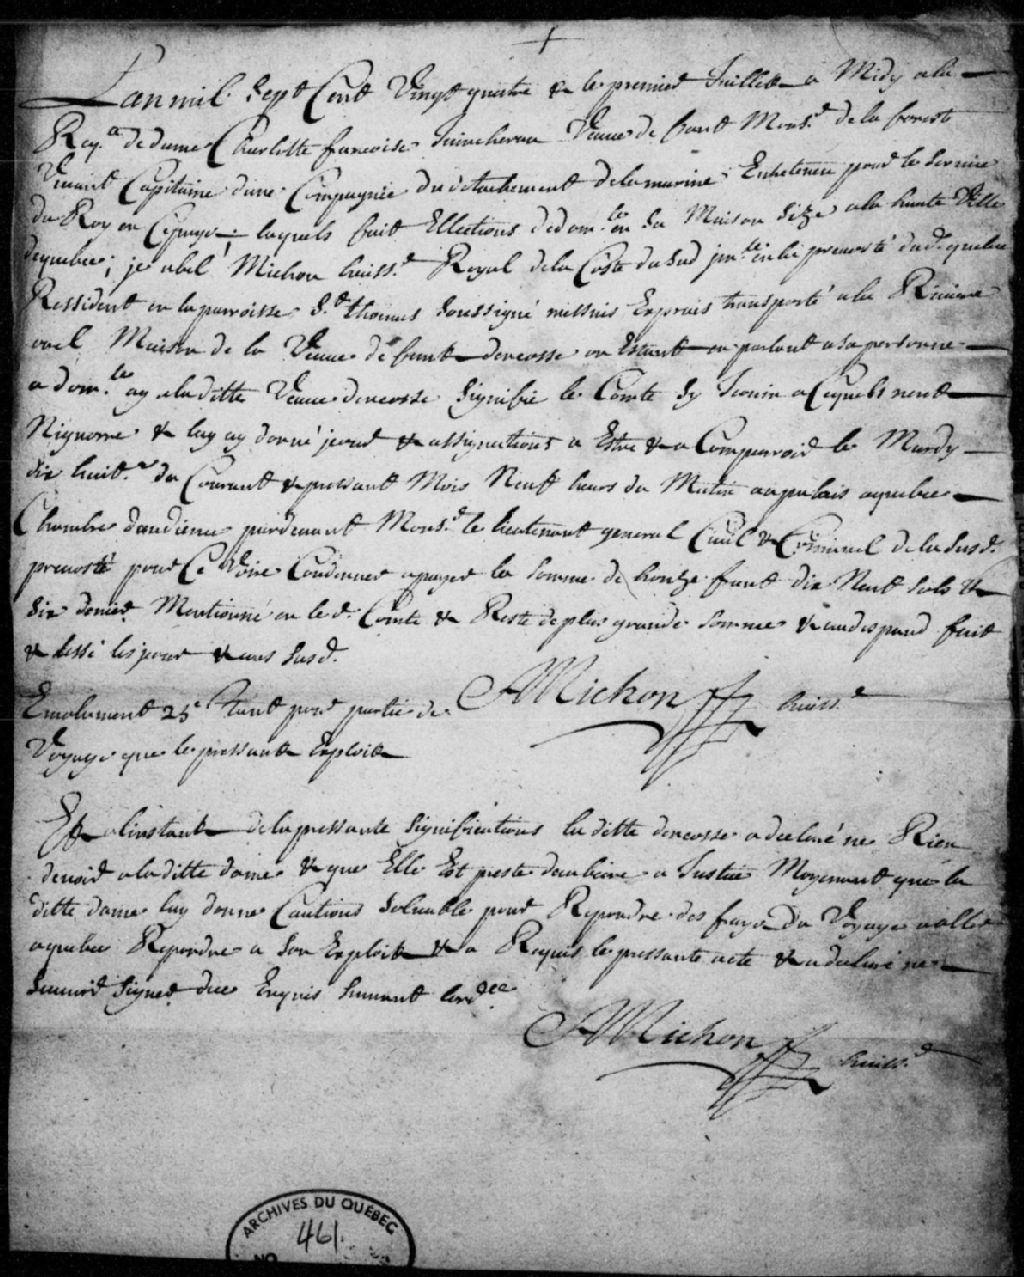 +
Lanmil Sept Cent Vingt quatre & le premier Juillet a Midy ala
Reqte de dame Charlotte francoise Juinchereau Veuve de feu Monsr de la forest
Vivant Capitaine dune Compagnie du détachement delamarine Entretenue pour le Service
du Roy en Ce pays; laquele fait Ellections de domle en Sa Maison Size ala haute Ville
dequebec; je abel Michon huissr Royal dela Coste du Sud en la prevosté dud quebec
Ressident en la parroisse St thomas Soussigné me suis Exprais transporté ala Riviere
Maison de la Veuve de feu en Estant en parlant a sa personne
a domle ay aladitte Veuve Signifié le Comte Sy aCequele nent
Nignorre & luy ay donné jour & assignations a Estre & a Comparroir le Mardy
dix huite du Courant & pressant Mois Neuf heurs du Matin au palais aquebec
Chambre daudience pardevant Monsr le lieutenant general Civil & Criminel de la Susd
prevosté pour Ce Voire Condenner apayer la Somme de frant dix Neuf Sols &
Six denier Mentionné en led Comte & Reste de plus grande Somme & audespand fait
& Lessé les jour & ans Susd.
AMichon huissr
Emolument 25s tant pour partie de
Voyage que le pressant Exploit
Et alinstant delapressante Significations laditte a declaré ne Rien
devoir aladitte dame & que Elle Est preste a Justice Moyenant que la
ditte dame luy donne Cautions Solvable pour Repondre des frays Du Voyage aller
aquebec Repondre a Son Exploit & a Requis le pressante acte & a declaré ne
Scavoir Signer due Enquis Suivant lordce
AMichon huissr
ARCHIVES DU QUÉBEC
461.
NO